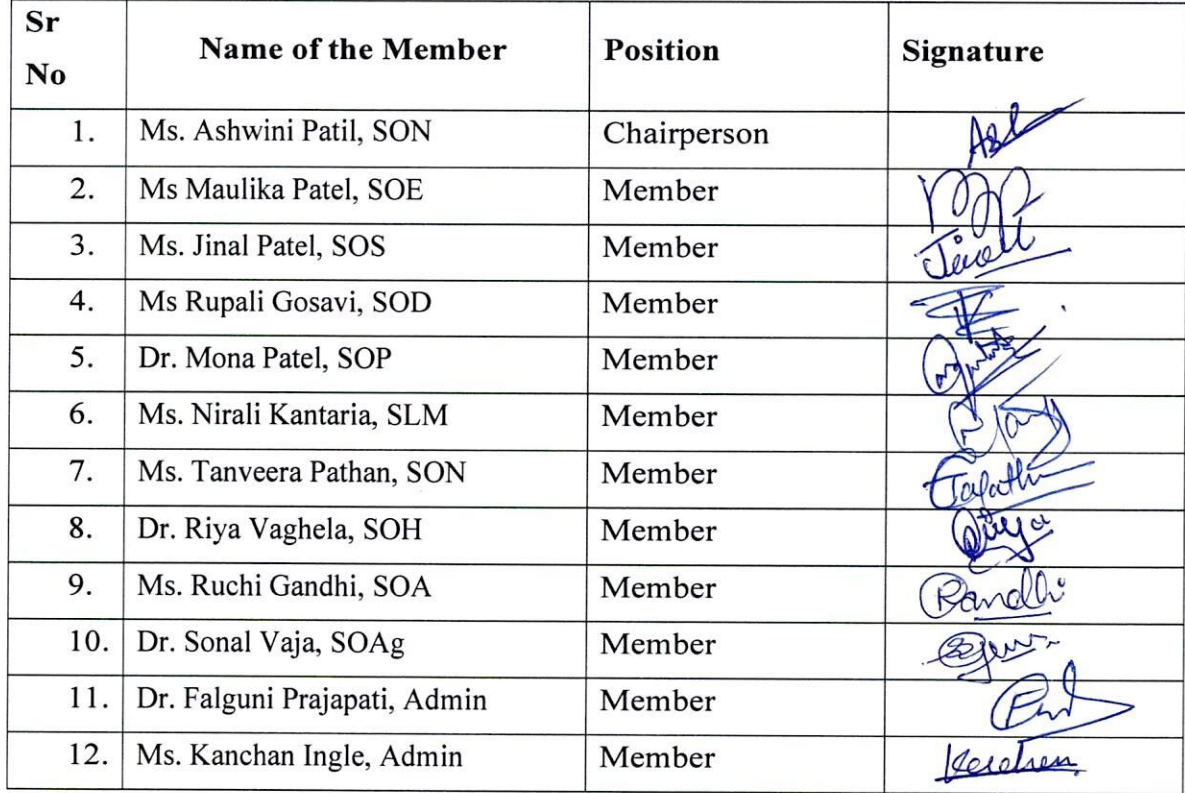 Sr No Name of the Member Position Signature
1. Ms. Ashwini Patil, SON Chairperson
2. Ms Maulika Patel, SOE Member
3. Ms. Jinal Patel, SOS Member Jinal
4. Ms Rupali Gosavi, SOD Member
5. Dr. Mona Patel, SOP Member
6. Ms. Nirali Kantaria, SLM Member
7. Ms. Tanveera Pathan, SON Member
8. Dr. Riya Vaghela, SOH Member
9. Ms. Ruchi Gandhi, SOA Member
10. Dr. Sonal Vaja, SOAg Member
11. Dr. Falguni Prajapati, Admin Member
12. Ms. Kanchan Ingle, Admin Member